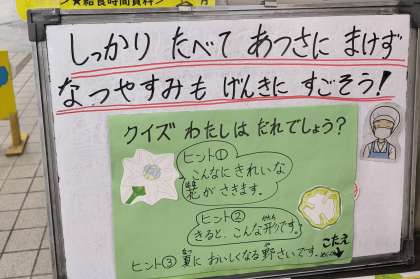 ★給食時間資料＞
しっかり たべて あつさに まけず
なつやすみも げんきに すごそう！
クイズ わたしは だれでしょう？
ヒント①
こんなにきれいな
花がさきます。
ヒント②
きると、こんな形です。
ヒント③ 夏に おいしくなる 野さいです。
こたえ